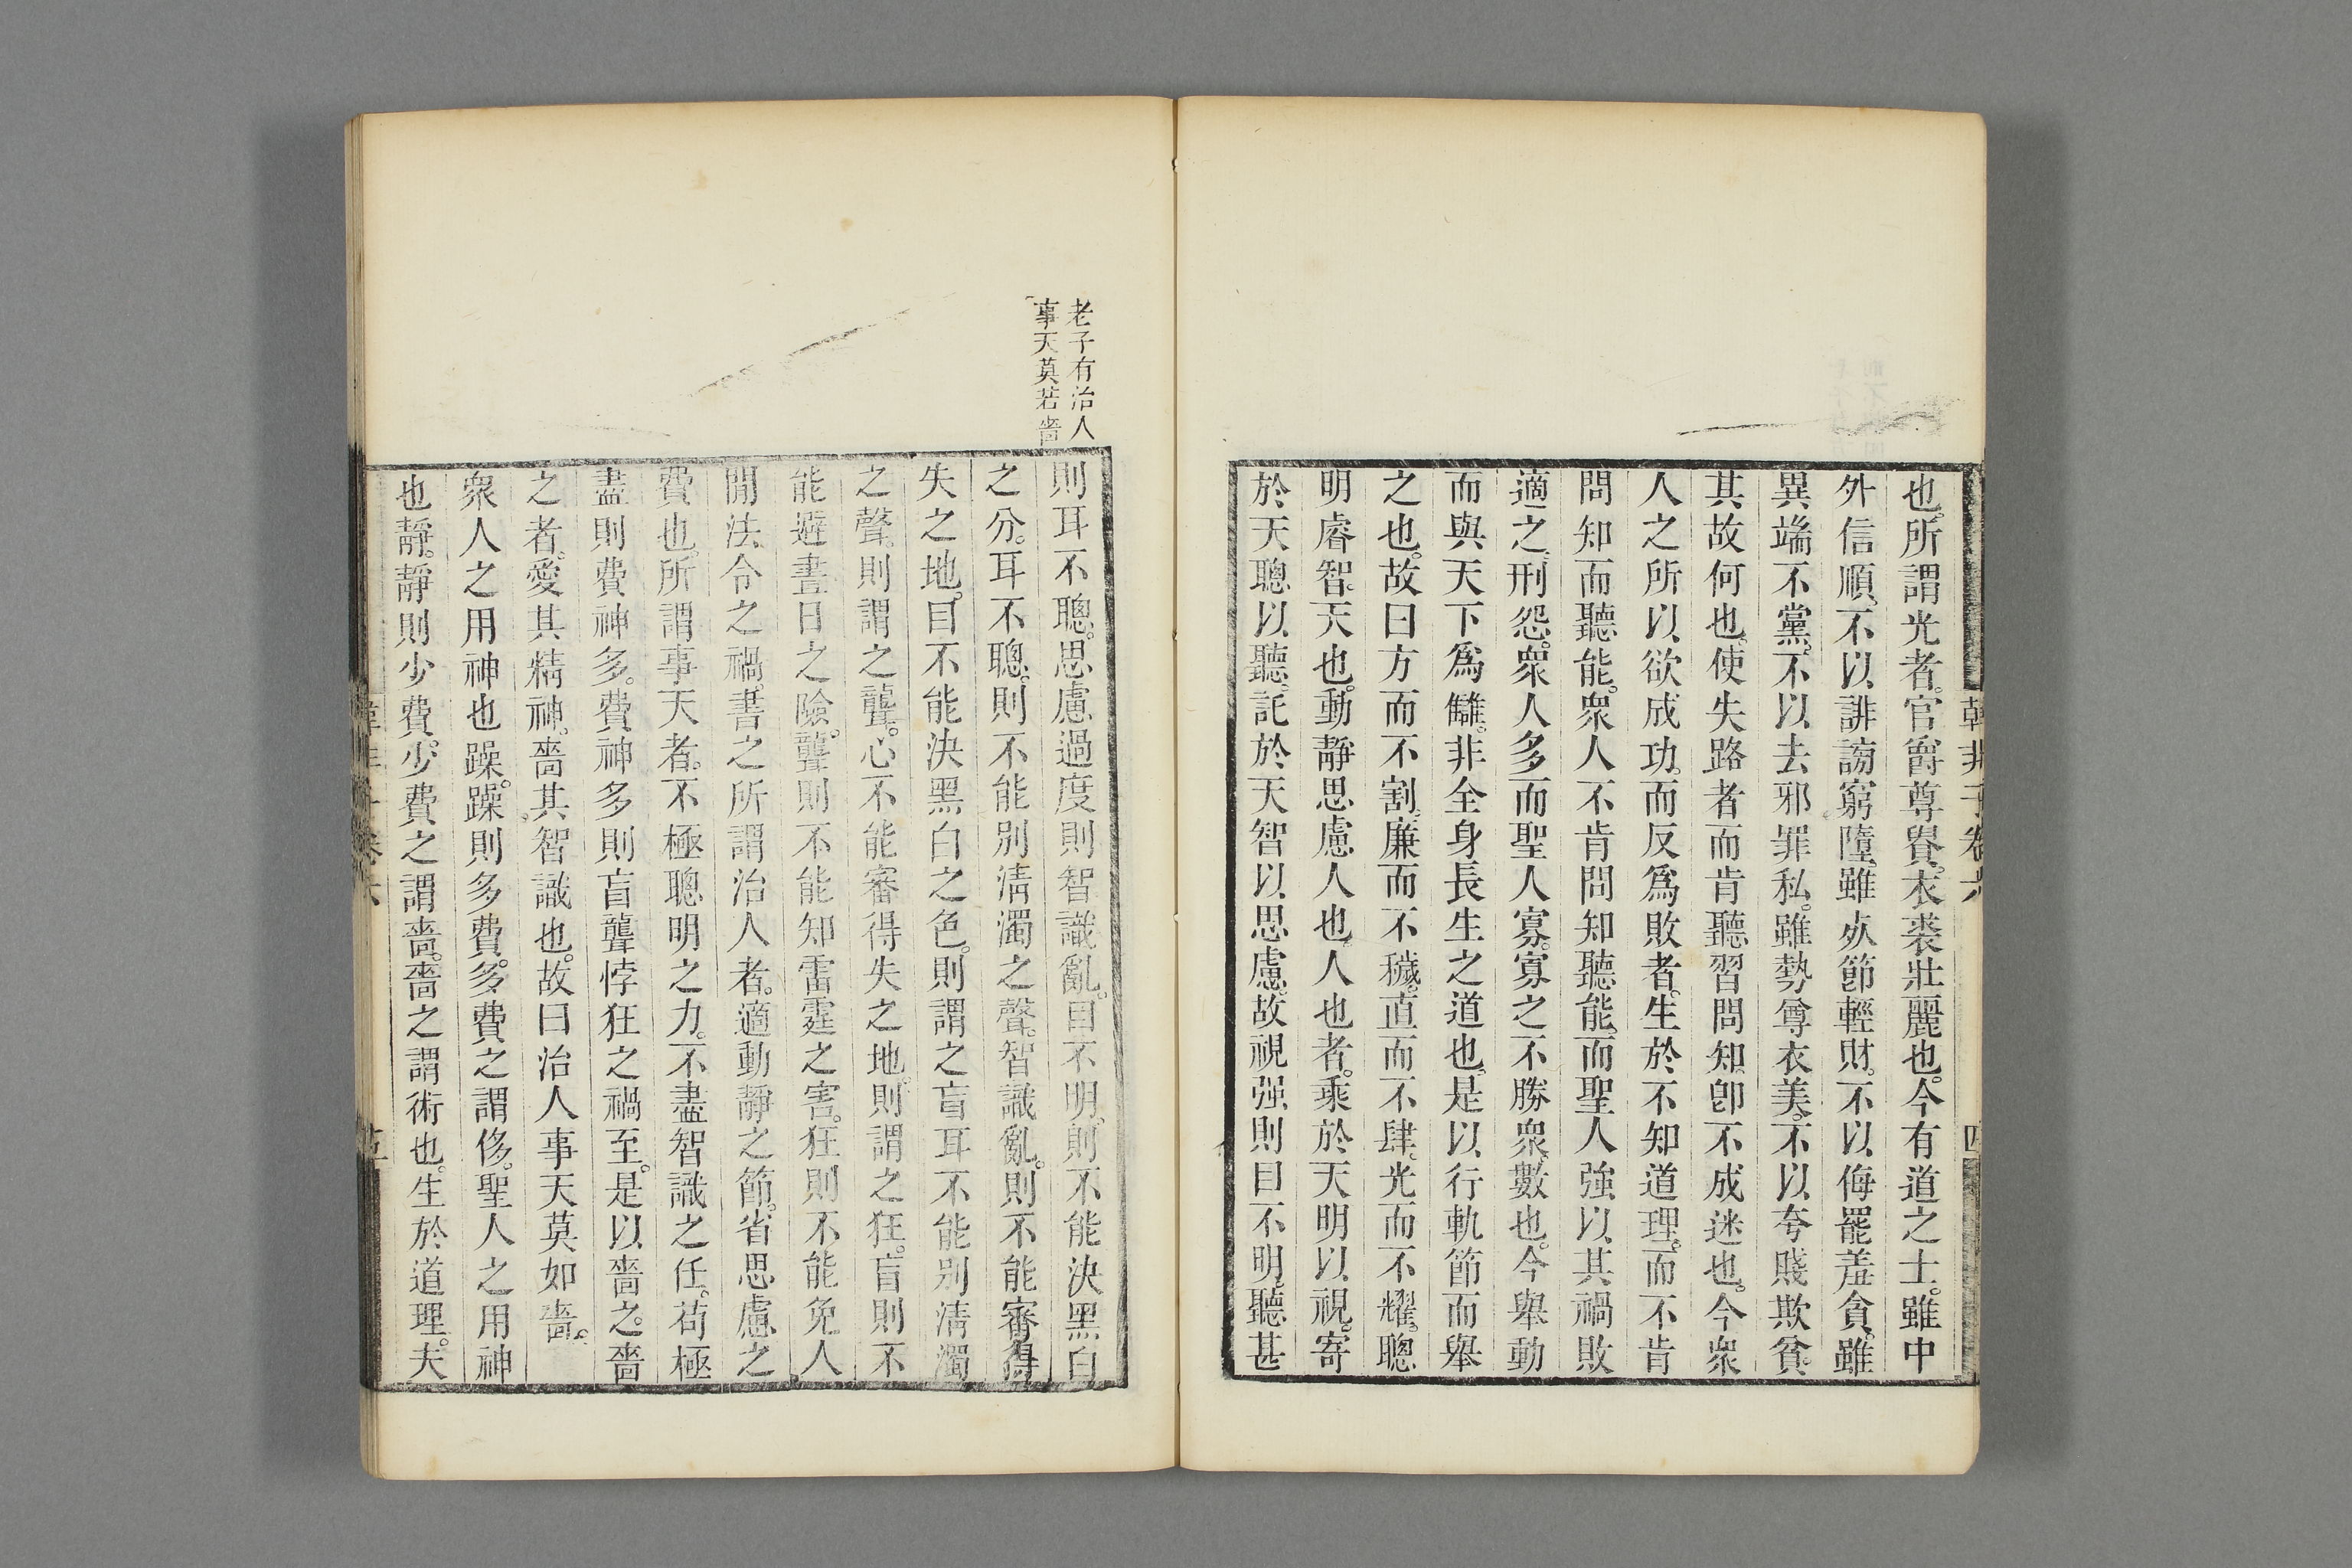 韓非子卷六
四
也。所謂光者。官爵尊貴。衣裘壯麗也。今有道之士。雖中
外信順。不以誹謗窮墮。雖死節輕財。不以侮罷羞貪。雖
異端不黨。不以去邪罪私。雖勢尊衣美。不以夸賤欺貧。
其故何也。使失路者而肯聽習問知。卽不成迷也。今衆
人之所以欲成功。而反爲敗者。生於不知道理。而不肯
問知而聽能。衆人不肯問知聽能。而聖人強以其禍敗
適之。刑怨。衆人多而聖人寡。寡之不勝衆。數也。今舉動
而與天下爲讎。非全身長生之道也。是以行軌節而舉
之也。故曰方而不割。廉而不穢。直而不肆。光而不耀。聰
明睿智。天也。動靜思慮人也。人也者。乘於天明以視。寄
於天聰以聽。託於天智以思慮。故視强則目不明。聽甚
老子有治人
事天莫若嗇
則耳不聰。思慮過度則智識亂。目不明。則不能決黑白
之分。耳不聰。則不能別清濁之聲。智識亂。則不能審得
失之地。目不能決黑白之色。則謂之盲耳不能別清濁
之聲。則謂之聾。心不能審得失之地。則謂之狂。盲則不
能避晝日之險。聾則不能知雷霆之害。狂則不能免人
間法令之禍。書之所謂治人者。適動靜之節。省思慮之
費也。所謂事天者。不極聰明之力。不盡智識之任。苟極
盡則費神多。費神多則盲聾悖狂之禍至。是以嗇之。嗇
之者。愛其精神。嗇其智識也。故曰治人事天莫如嗇。
衆人之用神也躁。躁則多費。多費之謂侈。聖人之用神
也靜。靜則少費。少費之謂嗇。嗇之謂術也。生於道理。夫